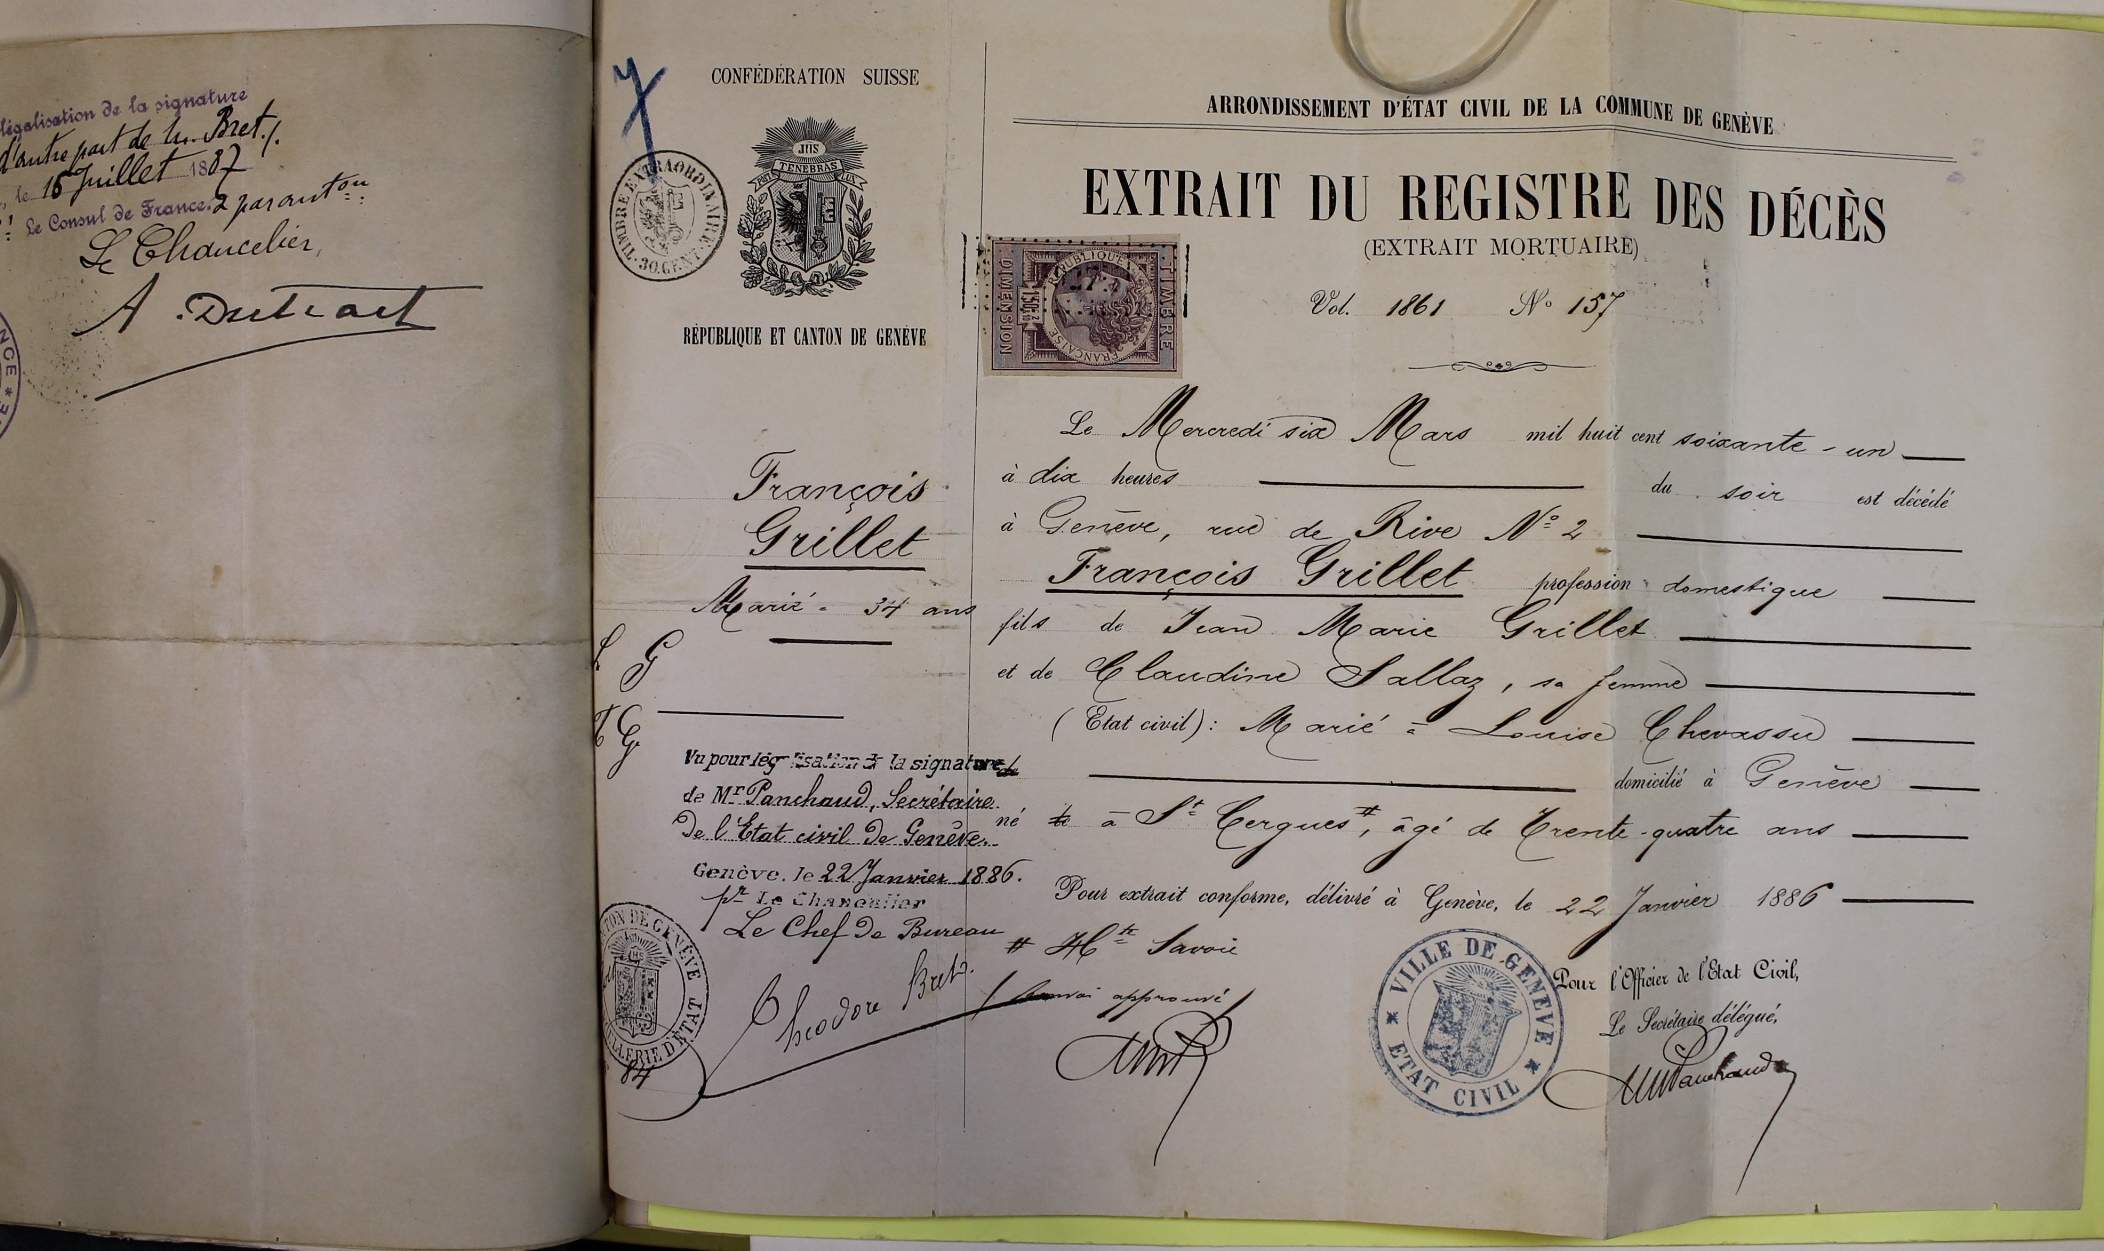 légalisation de la signature
d'autre part de M. Bret ./.
, le 16 Juillet 1887
Le Consul de France, & par aut.on
Le Chancelier,
A. Dutract
NCE *
7
CONFÉDÉRATION SUISSE
TIMBRE EXTRAORDINAIRE
30. CENT.
JHS
POST TENEBRAS LUX
RÉPUBLIQUE ET CANTON DE GENÈVE
François
Grillet
Marié - 34 ans
G
G
Vu pour légalisation de la signature
de Mr Panchaud, Secrétaire
de l'État civil de Genève.
Genève, le 22 Janvier 1886.
pr Le Chancelier
Le Chef de Bureau
Théodore Bret.
CANTON DE GENÈVE
CHANCELLERIE D'ÉTAT
84
ARRONDISSEMENT D'ÉTAT CIVIL DE LA COMMUNE DE GENÈVE
EXTRAIT DU REGISTRE DES DÉCÈS
(EXTRAIT MORTUAIRE)
TIMBRE
RÉPUBLIQUE FRANÇAISE
DIMENSION
Vol. 1861 No 157
Le Mercredi six Mars mil huit cent soixante-un
à dix heures du soir est décédé
à Genève, rue de Rive No 2
François Grillet profession domestique
fils de Jean Marie Grillet
et de Claudine Sallaz, sa femme
(Etat civil): Marié à Louise Chevassu
domicilié à Genève
né le à St Cergues #, âgé de Trente-quatre ans
Pour extrait conforme, délivré à Genève, le 22 Janvier 1886
# Hte Savoie
/ Renvoi approuvé /
VILLE DE GENÈVE
* ETAT CIVIL *
Pour l'Officier de l'Etat Civil,
Le Secrétaire délégué,
Panchaud